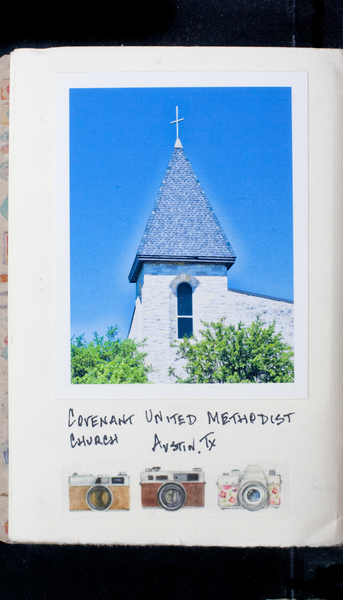 COVENANT UNITED METHODIST
CHURCH AUSTIN, TX